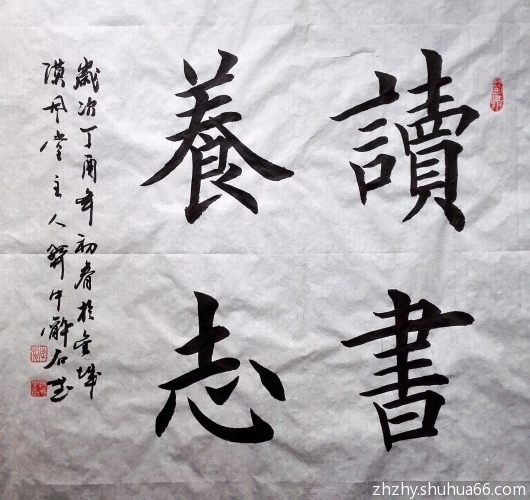 讀書
養志
歲次丁酉年初春於金城
漢風堂主人
zhzhy.shuhua66.com